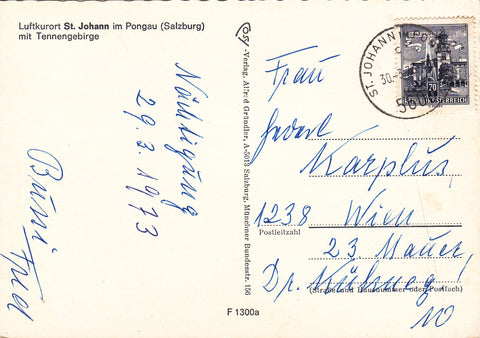 Luftkurort St. Johann im Pongau (Salzburg)
mit Tennengebirge
Nächtigung
29.3.1973
Cosy-Verlag, Alfred Gründler, A-5013 Salzburg, Münchner Bundesstr. 156
F 1300a
ST. JOHANN IM
30.
5600
70
ÖSTERREICH
Frau
Karplus,
1238 Wien
Postleitzahl
23 Mauer,
Dr.
(Straße und Hausnummer oder Postfach)
10